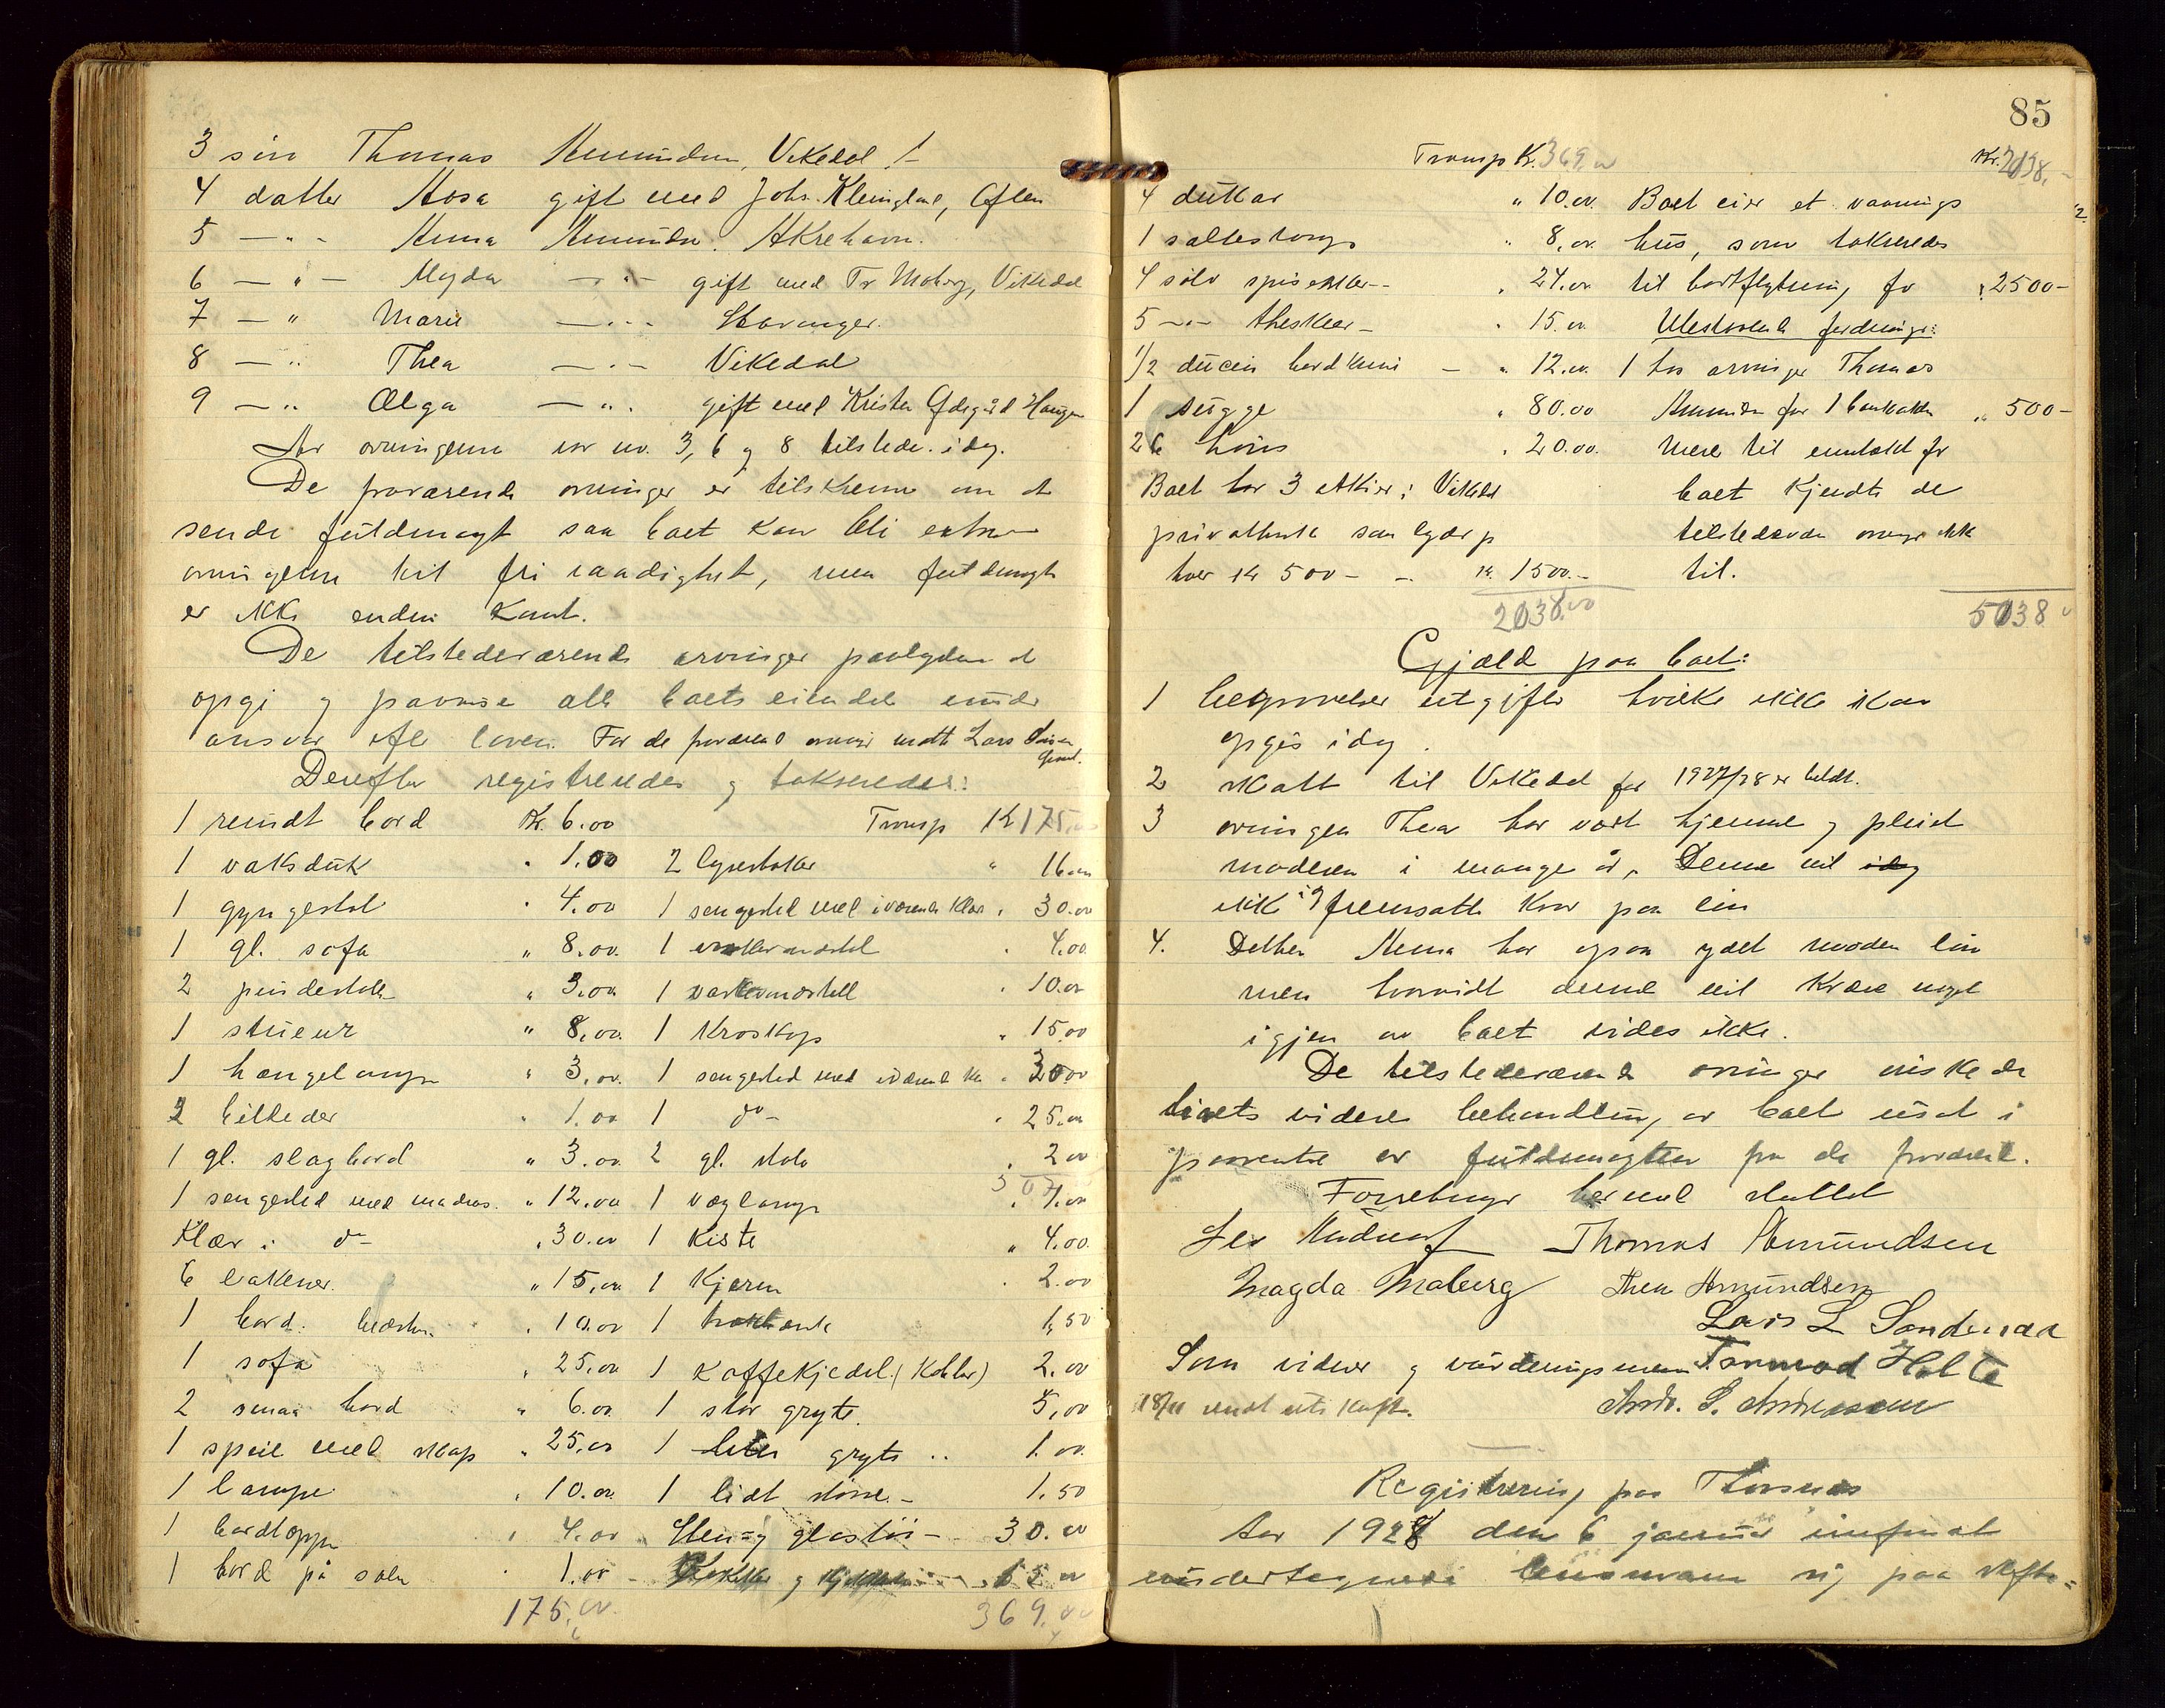 3 søn Thomas Amundsen, Vikedal
4 datter Aosa gift med Johs. Kleingland, Ølen
5 — " - Anna Amundsen. Åkrehavn.
6 — " — Magda — " — gift med Tr Moberg, Vikedal
7 — " Marie — " - Stavanger.
8 — " Thea — " — Vikedal
9 — " Olga — " . gift med Kristen Haugen
Av arvingerne var nr. 3, 6 og 8 tilstede idag.
De fraværende arvinger er tilskrevne om at
sende fuldmagt saa boet kan bli
arvingerne til fri raadighet, men fuldmagt
er ikke endnu komt.
De tilstedeværende arvinger paalydes at
opgi og paavise alt boets eiendele under
ansvar efter loven. For de fraværende møtte Lars
Derefter registreredes og takseredes:
1 rundt bord Kr. 6.00
Transp Kr 175.00
1 voksduk " 1.00
2 lysestaker " 16.00
1 gyngestol " 4.00
1 sengested med iværende klær " 30.00
1 gl. sofa " 8.00
1 4.00
2 pindestoler " 3.00
1 vaskevandstell " 10.00
1 stueur " 8.00
1 Kroskap " 15.00
1 hængelampe " 3.00
1 sengested med iværende klær 30.00
2 billeder " 1.00
1 do - " 25.00
1 gl. slagbord " 3.00
2 gl. stole " 2.00
1 sengested med madras. " 12.00
1 væglampe " 1.00
Klær i do - " 30.00
1 Kiste " 4.00
6 lakener. " 15.00
1 Kjerne " 2.00
1 bord. " 10.00
1 1,50
1 sofa " 25.00
1 Kaffekjedel (Kobber) 2.00
2 smaa bord " 6.00
1 stor gryte. 5,00
1 speil med skap " 25.00
1 liten gryte .. 1.00
1 lampe " 10.00
1 lidt større - 1.50
1 bordteppe " 4.00
Sten= og glastøi - 30.00
1 bord på salen " 1.00
175.00
369.00
85
Transp K. 369.00
Kr. 2038.-
4 dukar " 10.00
Boet eier et vaanings
1 saltestamp " 8.00
hus, som takseredes
4 sølv spiseskeer - " 24.00
til bortflytning for " 2500-
5 - " - theskeer - " 15.00
Utestaaende fordringer:
1/2 ducin bordkniv - " 12.00
1 hos arvinger Thomas
1 sugge " 80.00
Amundsen for 1 bankaktie " 500-
26 høns " 20.00
Mere til indhold for
Boet har 3 Aktier i Vikedal
boet kjendte de
privatbank som lyder paa
tilstedeværende arvinger ikke
hver Kr 500 - - Kr. 1500.-
til.
2038.00
5038
Gjæld paa boet:
1 begravelses utgifter hvilke ikke kan
opgis idag.
2 skatt til Vikedal for 1927/28 er betalt.
3 arvingen Thea har vært hjemme og pleiet
moderen i mange år. Denne vil idag
ikke fremsætte krav paa løn
4. Datteren Anna har ogsaa ydet moderen lån
men hvorvidt denne vil kræve noget
igjen av boet vides ikke.
De tilstedeværende arvinger ønskede
boets videre behandling av boet utsat i
paavente av fuldmagten fra de fraværende.
Forretningen hermed sluttet
Thomas Amundsen
Magda Moberg Thea Amundsen
Lars L Sandenaa
Som vidner og vurderingsmenn Tormod Holte
18/11 sendt utskrift.
Andr. S. Andreassen
Registrering paa Thorsnes
Aar 1928 den 6 januar indfandt
undertegnede lensmann sig paa skifte=